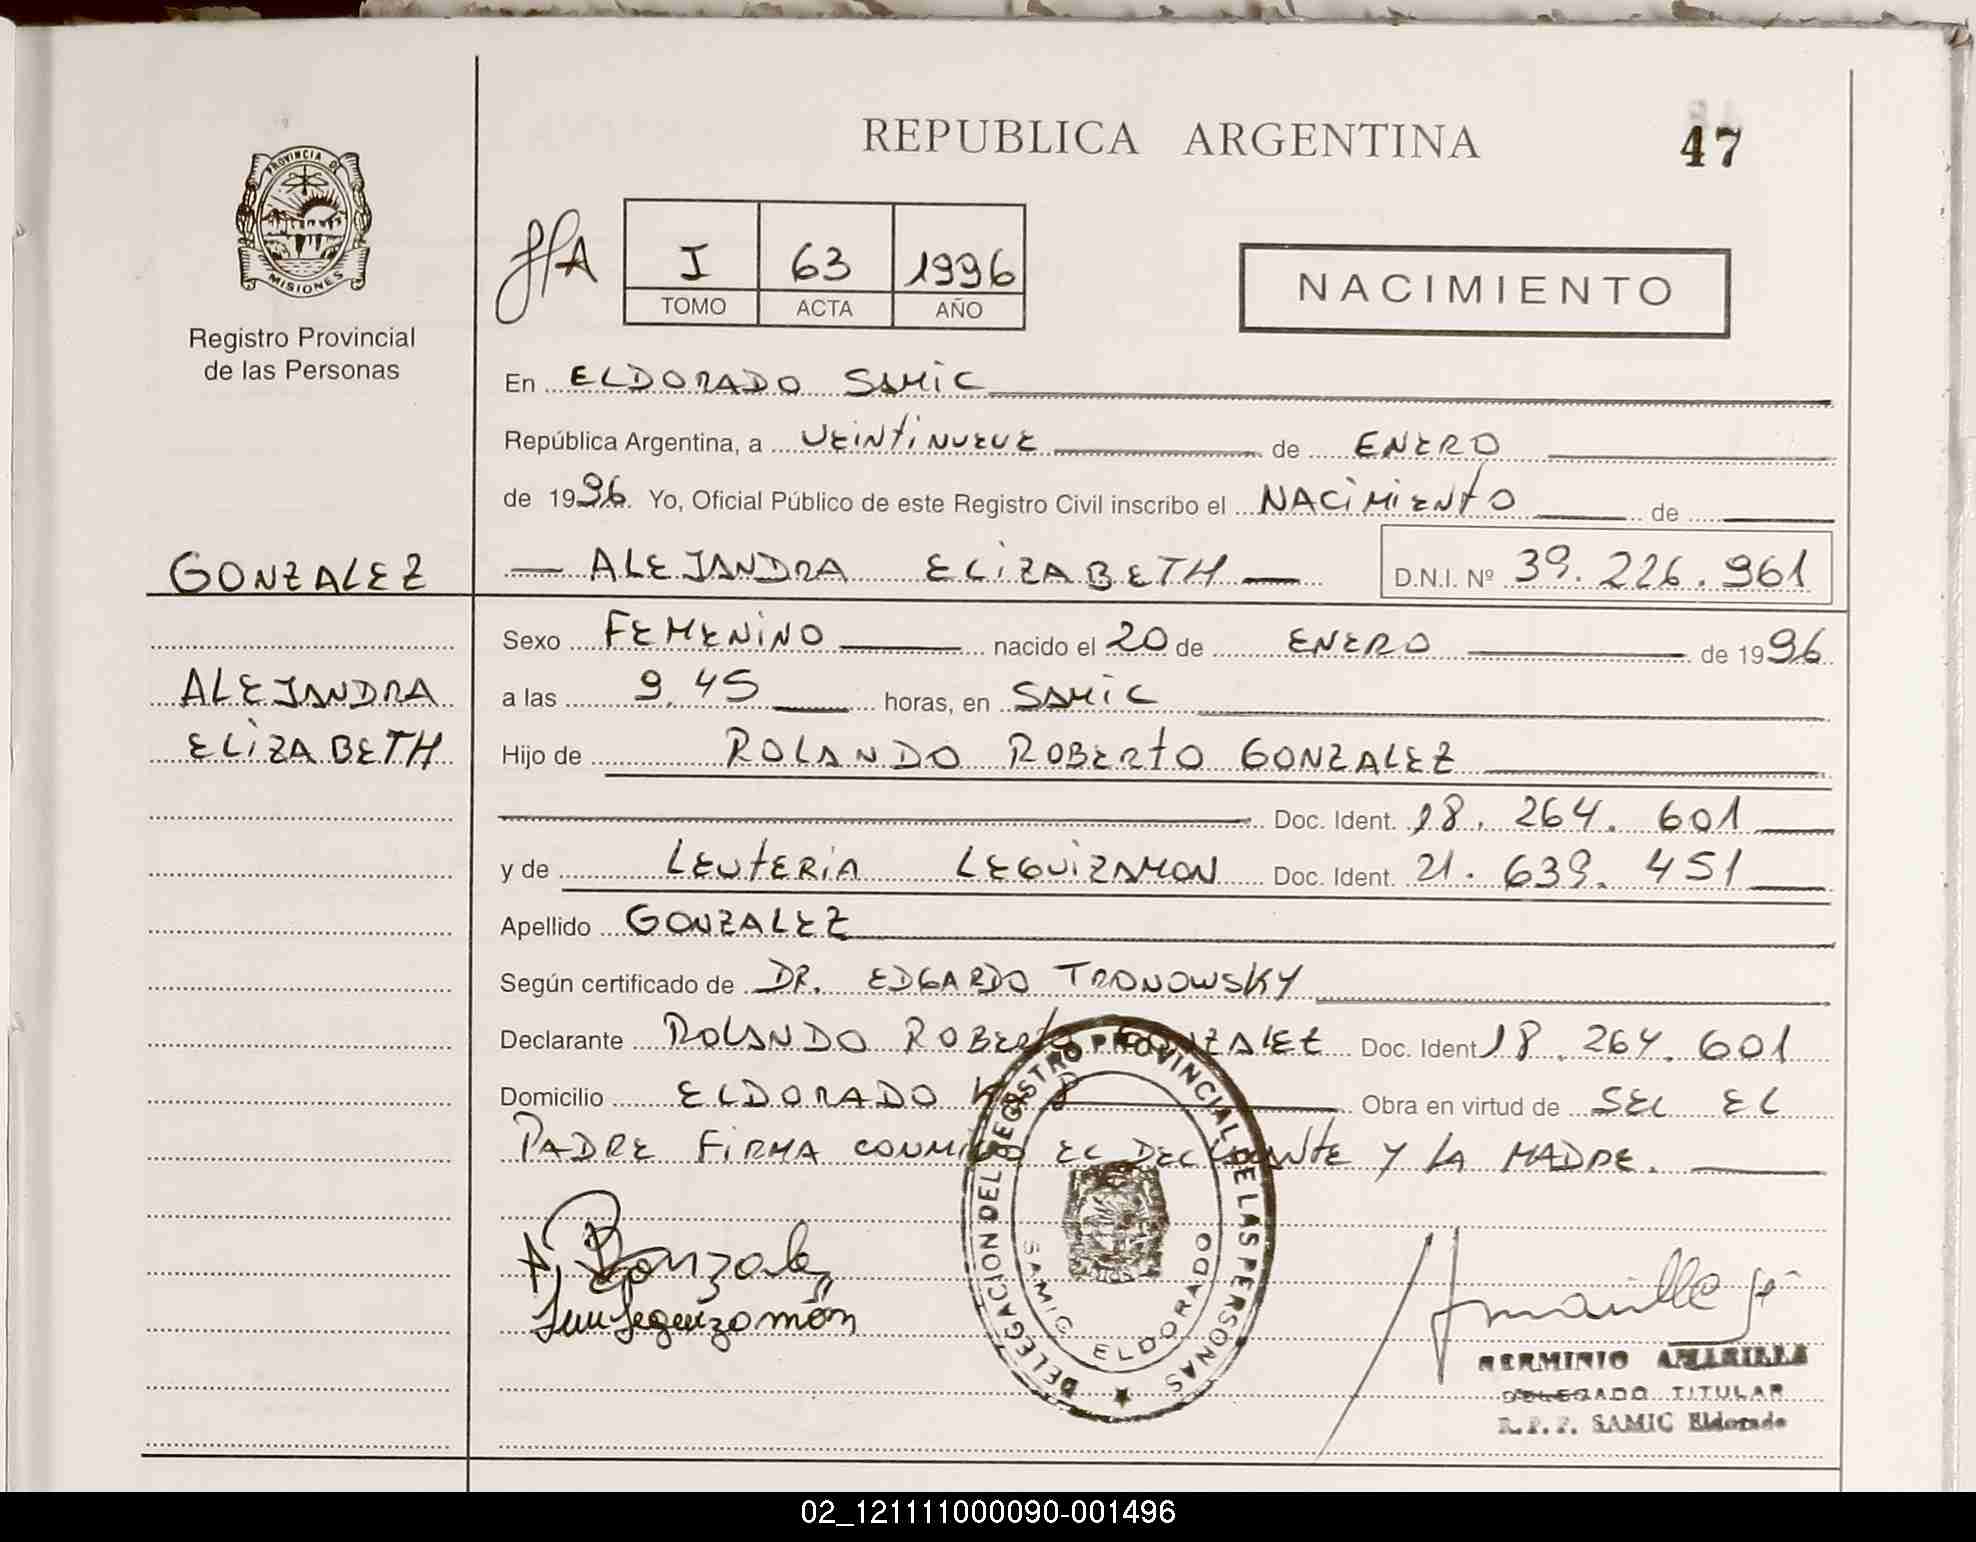 REPUBLICA ARGENTINA
47
PROVINCIA D
MISIONES
Registro Provincial
de las Personas
I 63 1996
TOMO ACTA AÑO
NACIMIENTO
En ELDORADO SAMIC
República Argentina, a VEINTINUEVE de ENERO
de 1996. Yo, Oficial Público de este Registro Civil inscribo el NACIMIENTO de
GONZALEZ
ALEJANDRA ELIZABETH D.N.I. Nº 39.226.961
Sexo FEMENINO nacido el 20 de ENERO de 1996
ALEJANDRA
a las 9.45 horas, en SAMIC
ELIZABETH
Hijo de ROLANDO ROBERTO GONZALEZ
Doc. Ident. 18.264.601
y de LEUTERIA LEGUIZAMON Doc. Ident. 21.639.451
Apellido GONZALEZ
Según certificado de DR. EDGARDO TRONOWSKY
Declarante ROLANDO ROBERTO GONZALEZ Doc. Ident. 18.264.601
Domicilio ELDORADO K 8 Obra en virtud de SEL EL
PADRE FIRMA CONMIGO EL DECLANTE Y LA MADRE.
DELEGACION DEL REGISTRO PROVINCIAL DE LAS PERSONAS
SAMIC ELDORADO
HERMINIO AMARILLA
DELEGADO TITULAR
R.P.P. SAMIC Eldorado
02_121111000090-001496